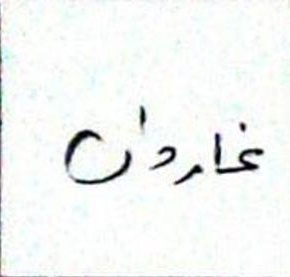 غاروان